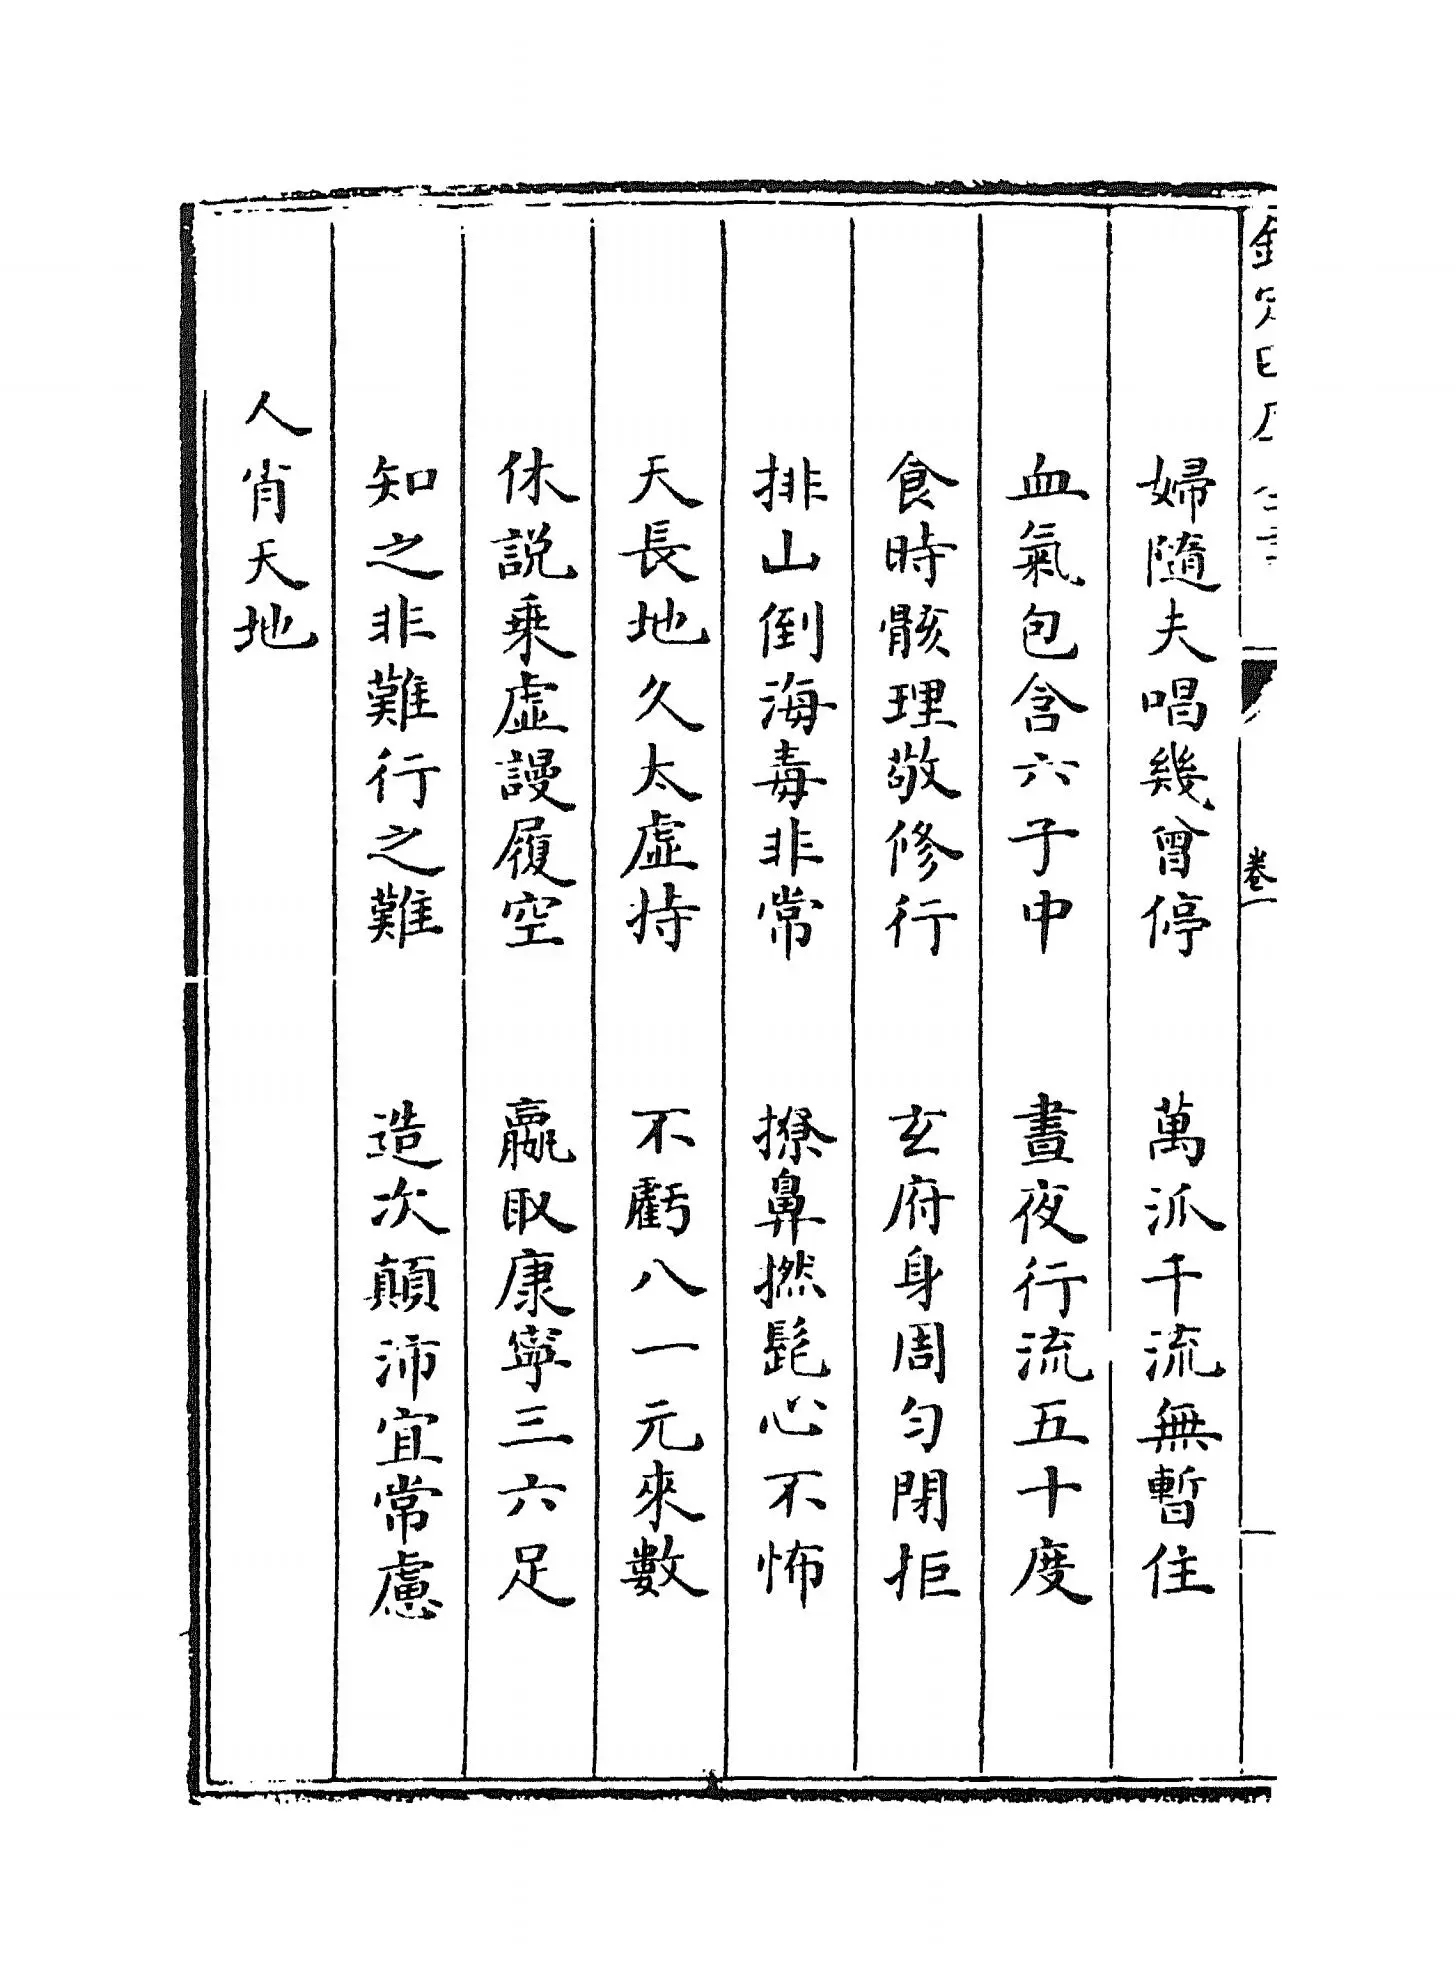 欽定四庫全書
卷一
婦隨夫唱幾曾停　萬派千流無暫住
血氣包含六子中　晝夜行流五十度
食時骸理敬修行　玄府身周勻閉拒
排山倒海毒非常　撩鼻撚髭心不怖
天長地久太虛持　不虧八一元來數
休説乗虛謾履空　贏取康寧三六足
知之非難行之難　造次顛沛宜常慮
人肖天地